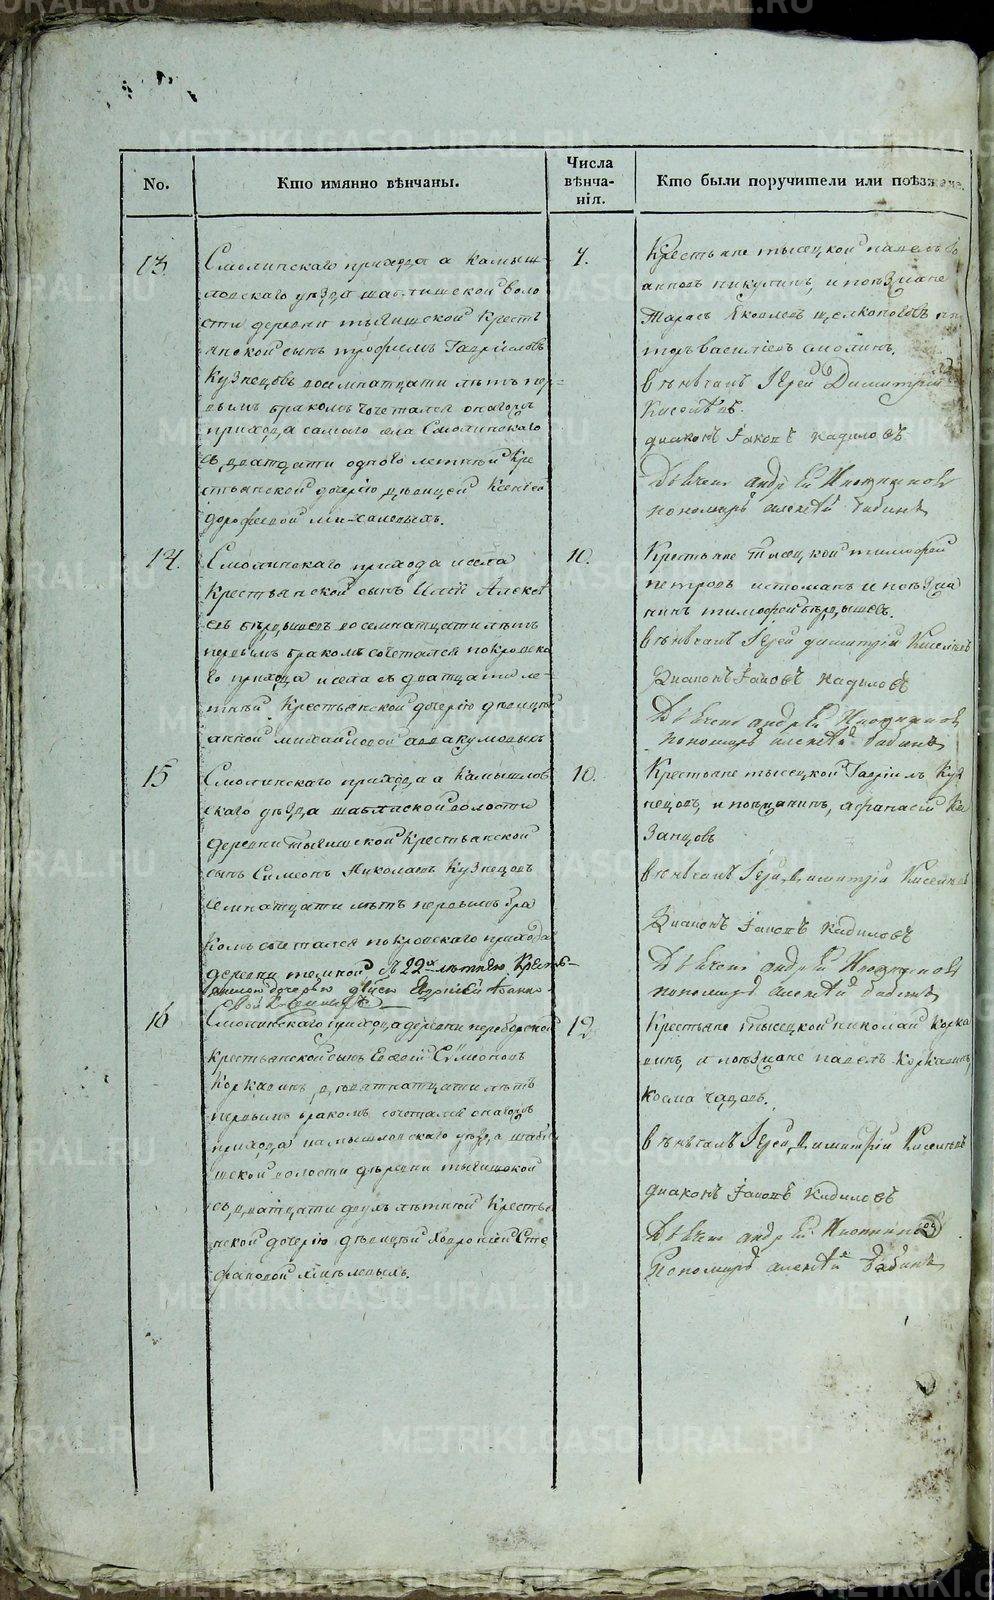 No.
Кто имянно вѣнчаны.
Числа
вѣнча-
нія.
Кто были поручители или поѣзжане.
13.
Смолинскаго прихода а Камыш-
ловскаго уѣзда шаблишской воло
сти деревни тыгишской крестъ
янской сынъ трофимъ Гавриловъ
Кузнецовъ восемнатцати лѣтъ пер-
вымъ бракомъ сочетался онагожъ
прихода самаго села Смолинскаго
съ дватцати одного летнѣй кре
стьянской дочерію дѣвицей Ксеніей
дорофеевой михалевыхъ.
7.
Крестьяне тысецкой павелъ Іо
анновъ пикулинъ, и поѣзжане
Тарасъ Яковлевъ щелконоговъ пи
торъ василіевъ смолинъ.
вѣнчалъ Іерей Димитрій
Киселевъ.
диаконъ Іаковъ Кадиловъ
Дьячекъ андрей
пономарь алексѣй бабинъ
14.
Смолинскаго прихода и села
Крестьянской сынъ Илія Алексѣ
евъ бердышевъ восемнатцати лѣтъ
первымъ бракомъ сочетался покровска
го прихода и села съ дватцати ле-
тнѣй Крестьянской дочерію дѣвицей
анной михайловой аввакумовыхъ
10.
Крестьяне тысецкой тимофей
петровъ истоминъ и поѣзжа
нинъ тимофей бердышевъ.
вѣнчалъ Іерей димитрій Киселевъ
Диаконъ Іаковъ Кадиловъ
Дьячекъ андрей
пономарь алексѣй бабинъ
15
Смолинскаго прихода а Камышлов
скаго уѣзда шаблиской волости
деревни тыгишской Крестьянской
сынъ Симеонъ Николаевъ Кузнецовъ
семнатцати лѣтъ первымъ бра
комъ сочетался покровскаго прихода
деревни темной съ 22хъ лѣтнею Кресть-
янскою дочерью дѣвицей
16
10.
Крестьяне тысецкой Гавріилъ Куз
нецовъ, и поѣзжанинъ, афанасій Ка
занцовъ
вѣнчалъ Іерей Димитрій Киселевъ
Диаконъ Іаковъ Кадиловъ
Дьячекъ андрей
пономарь алексѣй бабинъ
Смолинскаго прихода деревни переборской
крестьянской сынъ Евсей Симеоновъ
Коркавинъ, дватцати лѣтъ
первымъ бракомъ сочетался онагожъ
прихода камышловскаго уѣзда шабли
шской волости деревни тыгишской
съ дватцати двухъ лѣтнѣй Кресть
янской дочерію дѣвицей Хавроніей Сте
фановой
12
Крестьяне Тысецкой николай Корка
винъ, и поѣзжане павелъ Коркавинъ,
косма
вѣнчалъ Іерей Димитрій Киселевъ
диаконъ Іаковъ Кадиловъ
Дьячекъ андрей
Пономарь алексѣй бабинъ
METRIKI.GASO-URAL.RU